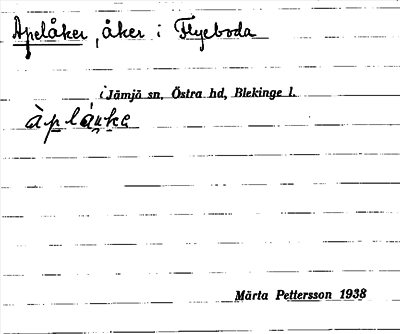 Apelåker, åker i Flyeboda
i Jämjö sn, Östra hd, Blekinge l.
àplåka
Märta Pettersson 1938